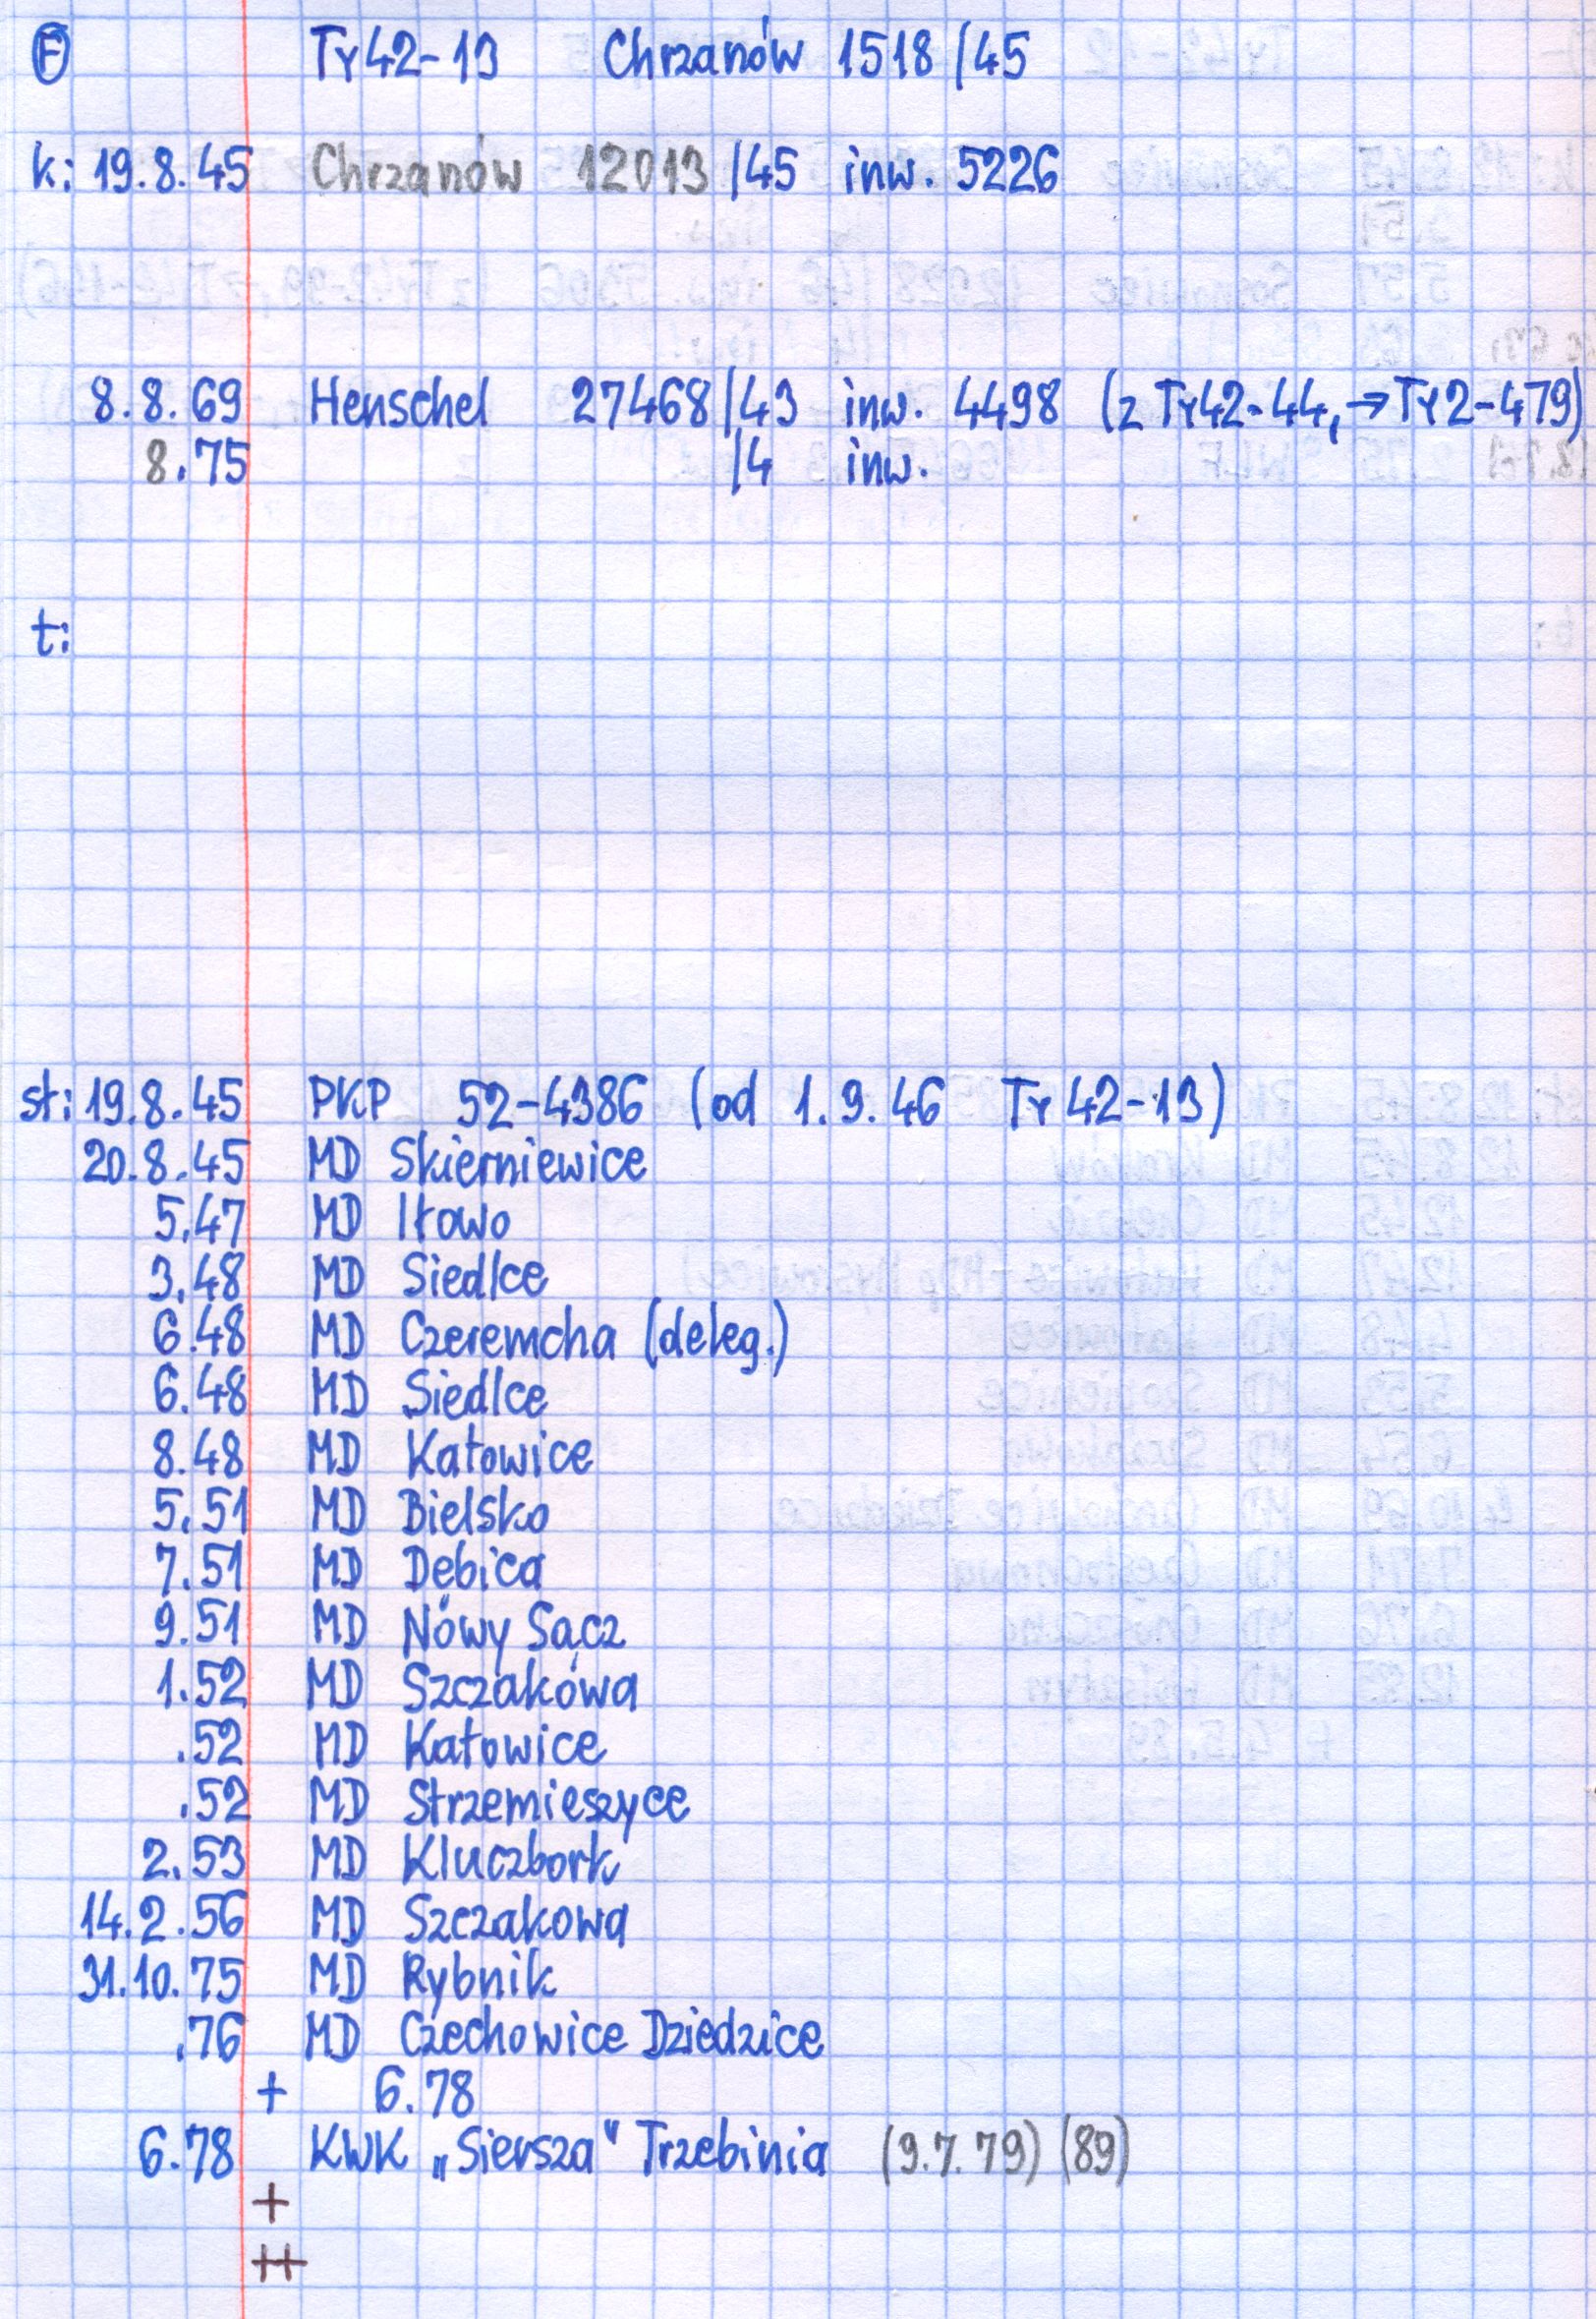 F Ty42-13 Chrzanów 1518/45
k: 19.8.45 Chrzanów 12013/45 inw. 5226
8.8.69 Henschel 27468/43 inw. 4498 (z Ty42-44, → Ty2-479)
8.75 /4 inw.
t:
st: 19.8.45 PKP 52-4386 (od 1.9.46 Ty42-13)
20.8.45 MD Skierniewice
5.47 MD Iłowo
3.48 MD Siedlce
6.48 MD Czeremcha (deleg.)
6.48 MD Siedlce
8.48 MD Katowice
5.51 MD Bielsko
7.51 MD Dębica
9.51 MD Nowy Sącz
1.52 MD Szczakowa
.52 MD Katowice
.52 MD Strzemieszyce
2.53 MD Kluczbork
14.2.56 MD Szczakowa
31.10.75 MD Rybnik
.76 MD Czechowice Dziedzice
+ 6.78
6.78 KWK „Siersza" Trzebinia (9.7.79) (89)
+
++